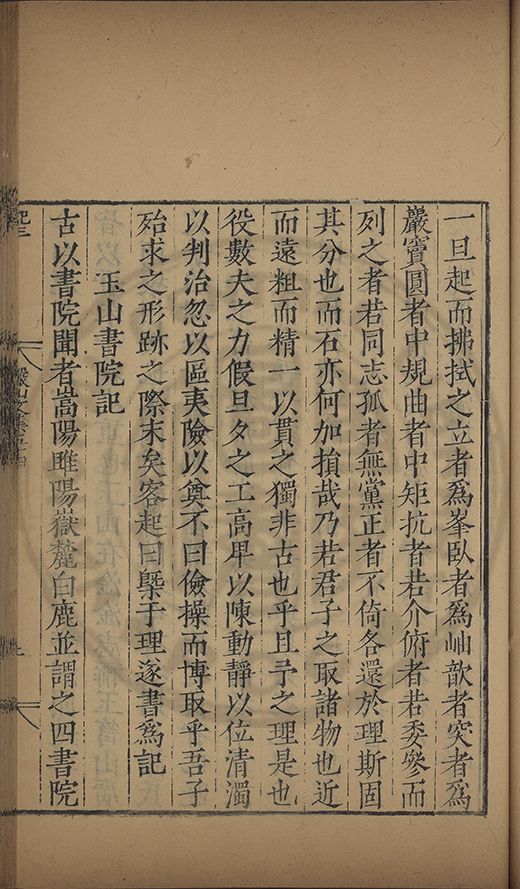 一旦起而拂拭之立者爲峯臥者爲岫歆者突者爲
巖竇圓者中規曲者中矩抗者若介俯者若委參而
列之者若同志孤者無黨正者不倚各還於理斯固
其分也而石亦何加損哉乃若君子之取諸物也近
而遠粗而精一以貫之獨非古也乎且予之理是也
役數夫之力假旦夕之工高卑以陳動靜以位清濁
以判治忽以區夷險以奠不曰儉操而博取乎吾子
殆求之形跡之際末矣客起曰槩于理遂書爲記
玉山書院記
古以書院聞者嵩陽睢陽嶽麓白鹿並謂之四書院
記三